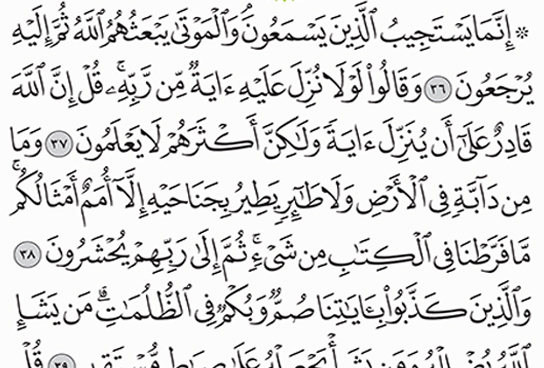 ۞ إِنَّمَا يَسْتَجِيبُ ٱلَّذِينَ يَسْمَعُونَۘ وَٱلْمَوْتَىٰ يَبْعَثُهُمُ ٱللَّهُ ثُمَّ إِلَيْهِ
يُرْجَعُونَ ٣٦ وَقَالُوا۟ لَوْلَا نُزِّلَ عَلَيْهِ ءَايَةٌ مِّن رَّبِّهِۦۚ قُلْ إِنَّ ٱللَّهَ
قَادِرٌ عَلَىٰٓ أَن يُنَزِّلَ ءَايَةً وَلَٰكِنَّ أَكْثَرَهُمْ لَا يَعْلَمُونَ ٣٧ وَمَا
مِن دَآبَّةٍ فِى ٱلْأَرْضِ وَلَا طَٰٓئِرٍ يَطِيرُ بِجَنَاحَيْهِ إِلَّآ أُمَمٌ أَمْثَالُكُمۚ
مَّا فَرَّطْنَا فِى ٱلْكِتَٰبِ مِن شَىْءٍۚ ثُمَّ إِلَىٰ رَبِّهِمْ يُحْشَرُونَ ٣٨
وَٱلَّذِينَ كَذَّبُوا۟ بِـَٔايَٰتِنَا صُمٌّ وَبُكْمٌ فِى ٱلظُّلُمَٰتِۗ مَن يَشَإِ
ٱللَّهُ يُضْلِلْهُ وَمَن يَشَأْ يَجْعَلْهُ عَلَىٰ صِرَٰطٍ مُّسْتَقِيمٍ ٣٩ قُلْ